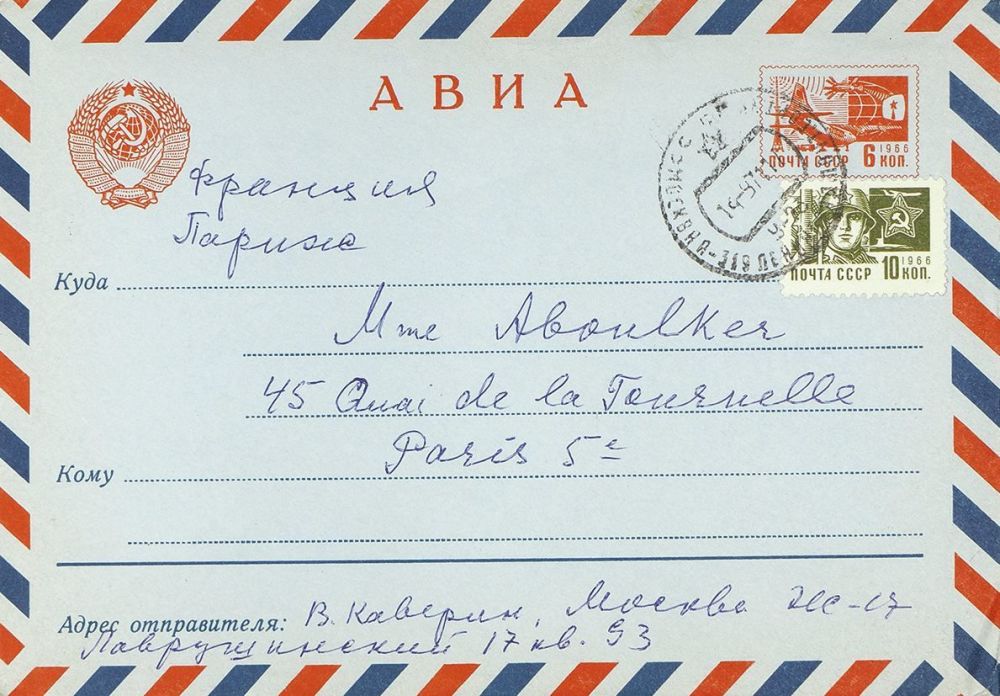 АВИА
1966
ПОЧТА СССР 6 КОП.
1966
ПОЧТА СССР 10 КОП.
Франция
Париж
Куда
Mme Aboulker
45 Quai de la Tournelle
Paris 5e
Кому
Адрес отправителя: В. Каверин, Москва Ж-17
Лаврушинский 17 кв. 93